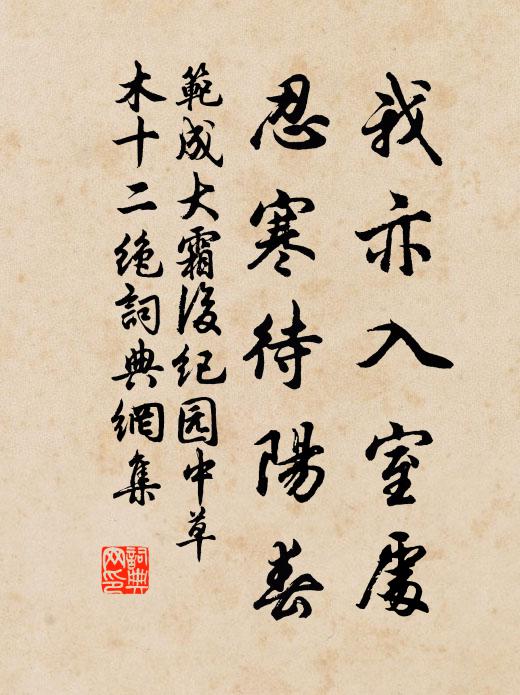 我亦入室處
忍寒待陽春
範成大霜後纪园中草
木十二绝詞典網集
詞典
网印